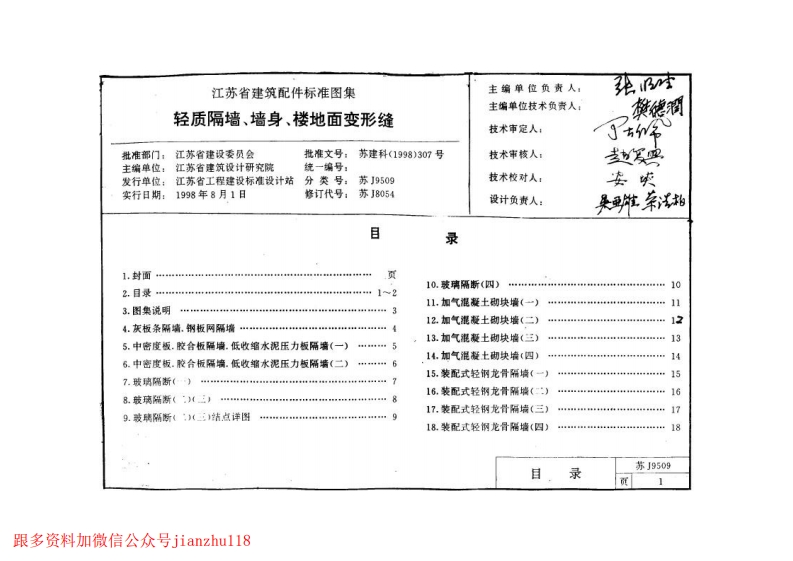 江苏省建筑配件标准图集
轻质隔墙、墙身、楼地面变形缝
批准部门： 江苏省建设委员会 批准文号： 苏建科(1998)307号
主编单位： 江苏省建筑设计研究院 统一编号：
发行单位： 江苏省工程建设标准设计站 分 类 号： 苏J9509
实行日期： 1998年8月1日 修订代号： 苏J8054
主编单位负责人：
主编单位技术负责人： 樊德润
技术审定人：
技术审核人：
技术校对人：
设计负责人：
目 录
1.封面 …… 页
2.目录 …… 1～2
3.图集说明 …… 3
4.灰板条隔墙.钢板网隔墙 …… 4
5.中密度板.胶合板隔墙.低收缩水泥压力板隔墙(一) …… 5
6.中密度板.胶合板隔墙.低收缩水泥压力板隔墙(二) …… 6
7.玻璃隔断(一) …… 7
8.玻璃隔断(二)(三) …… 8
9.玻璃隔断(二)(三)结点详图 …… 9
10.玻璃隔断(四) …… 10
11.加气混凝土砌块墙(一) …… 11
12.加气混凝土砌块墙(二) …… 12
13.加气混凝土砌块墙(三) …… 13
14.加气混凝土砌块墙(四) …… 14
15.装配式轻钢龙骨隔墙(一) …… 15
16.装配式轻钢龙骨隔墙(二) …… 16
17.装配式轻钢龙骨隔墙(三) …… 17
18.装配式轻钢龙骨隔墙(四) …… 18
目 录
苏J9509
页 1
跟多资料加微信公众号jianzhu118